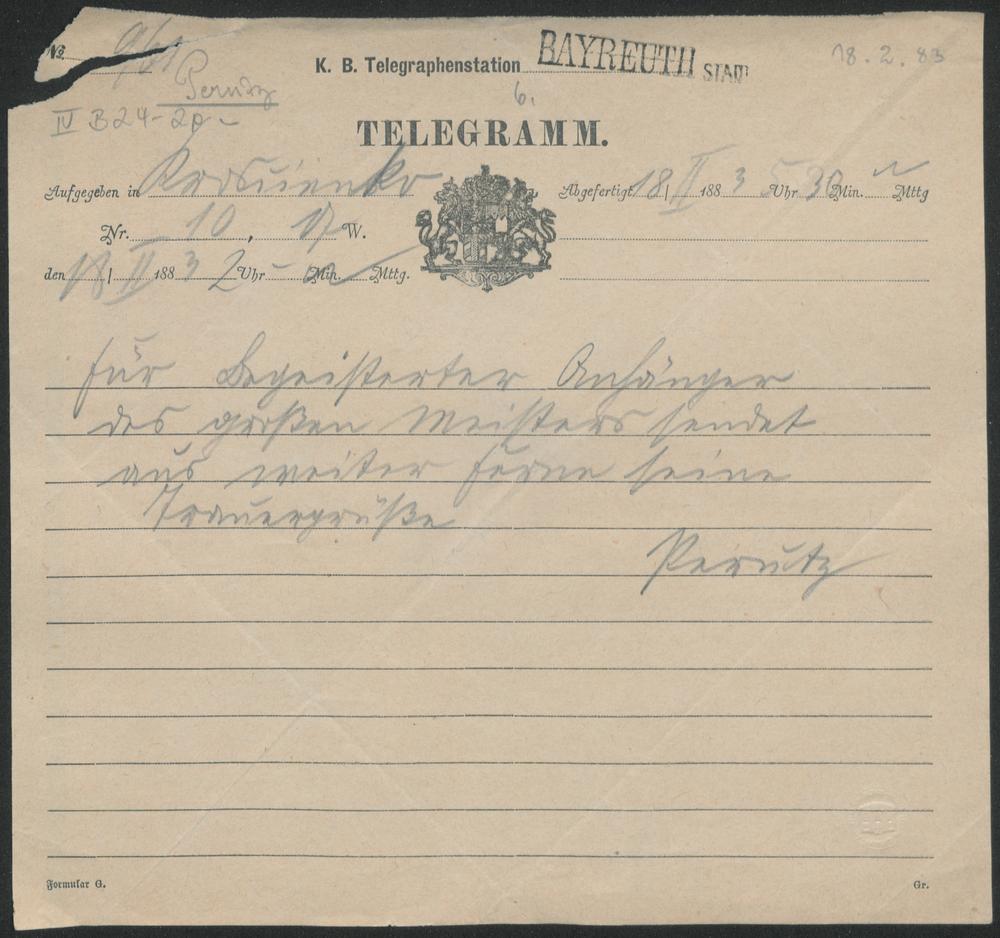 No. 961
K. B. Telegraphenstation BAYREUTH STADT
18. 2. 83
Perutz
6.
IV B 24-20
TELEGRAMM.
Aufgegeben in
Abgefertigt 18/II 1883 5 Uhr 30 Min. Mttg
Nr. 10, 17 W.
den 18/II 1883 2 Uhr - Min. Mttg.
für Begeisterter Anhänger
des großen Meisters sendet
aus weiter Ferne seine
Trauergrüße
Perutz
Formular G.
Gr.